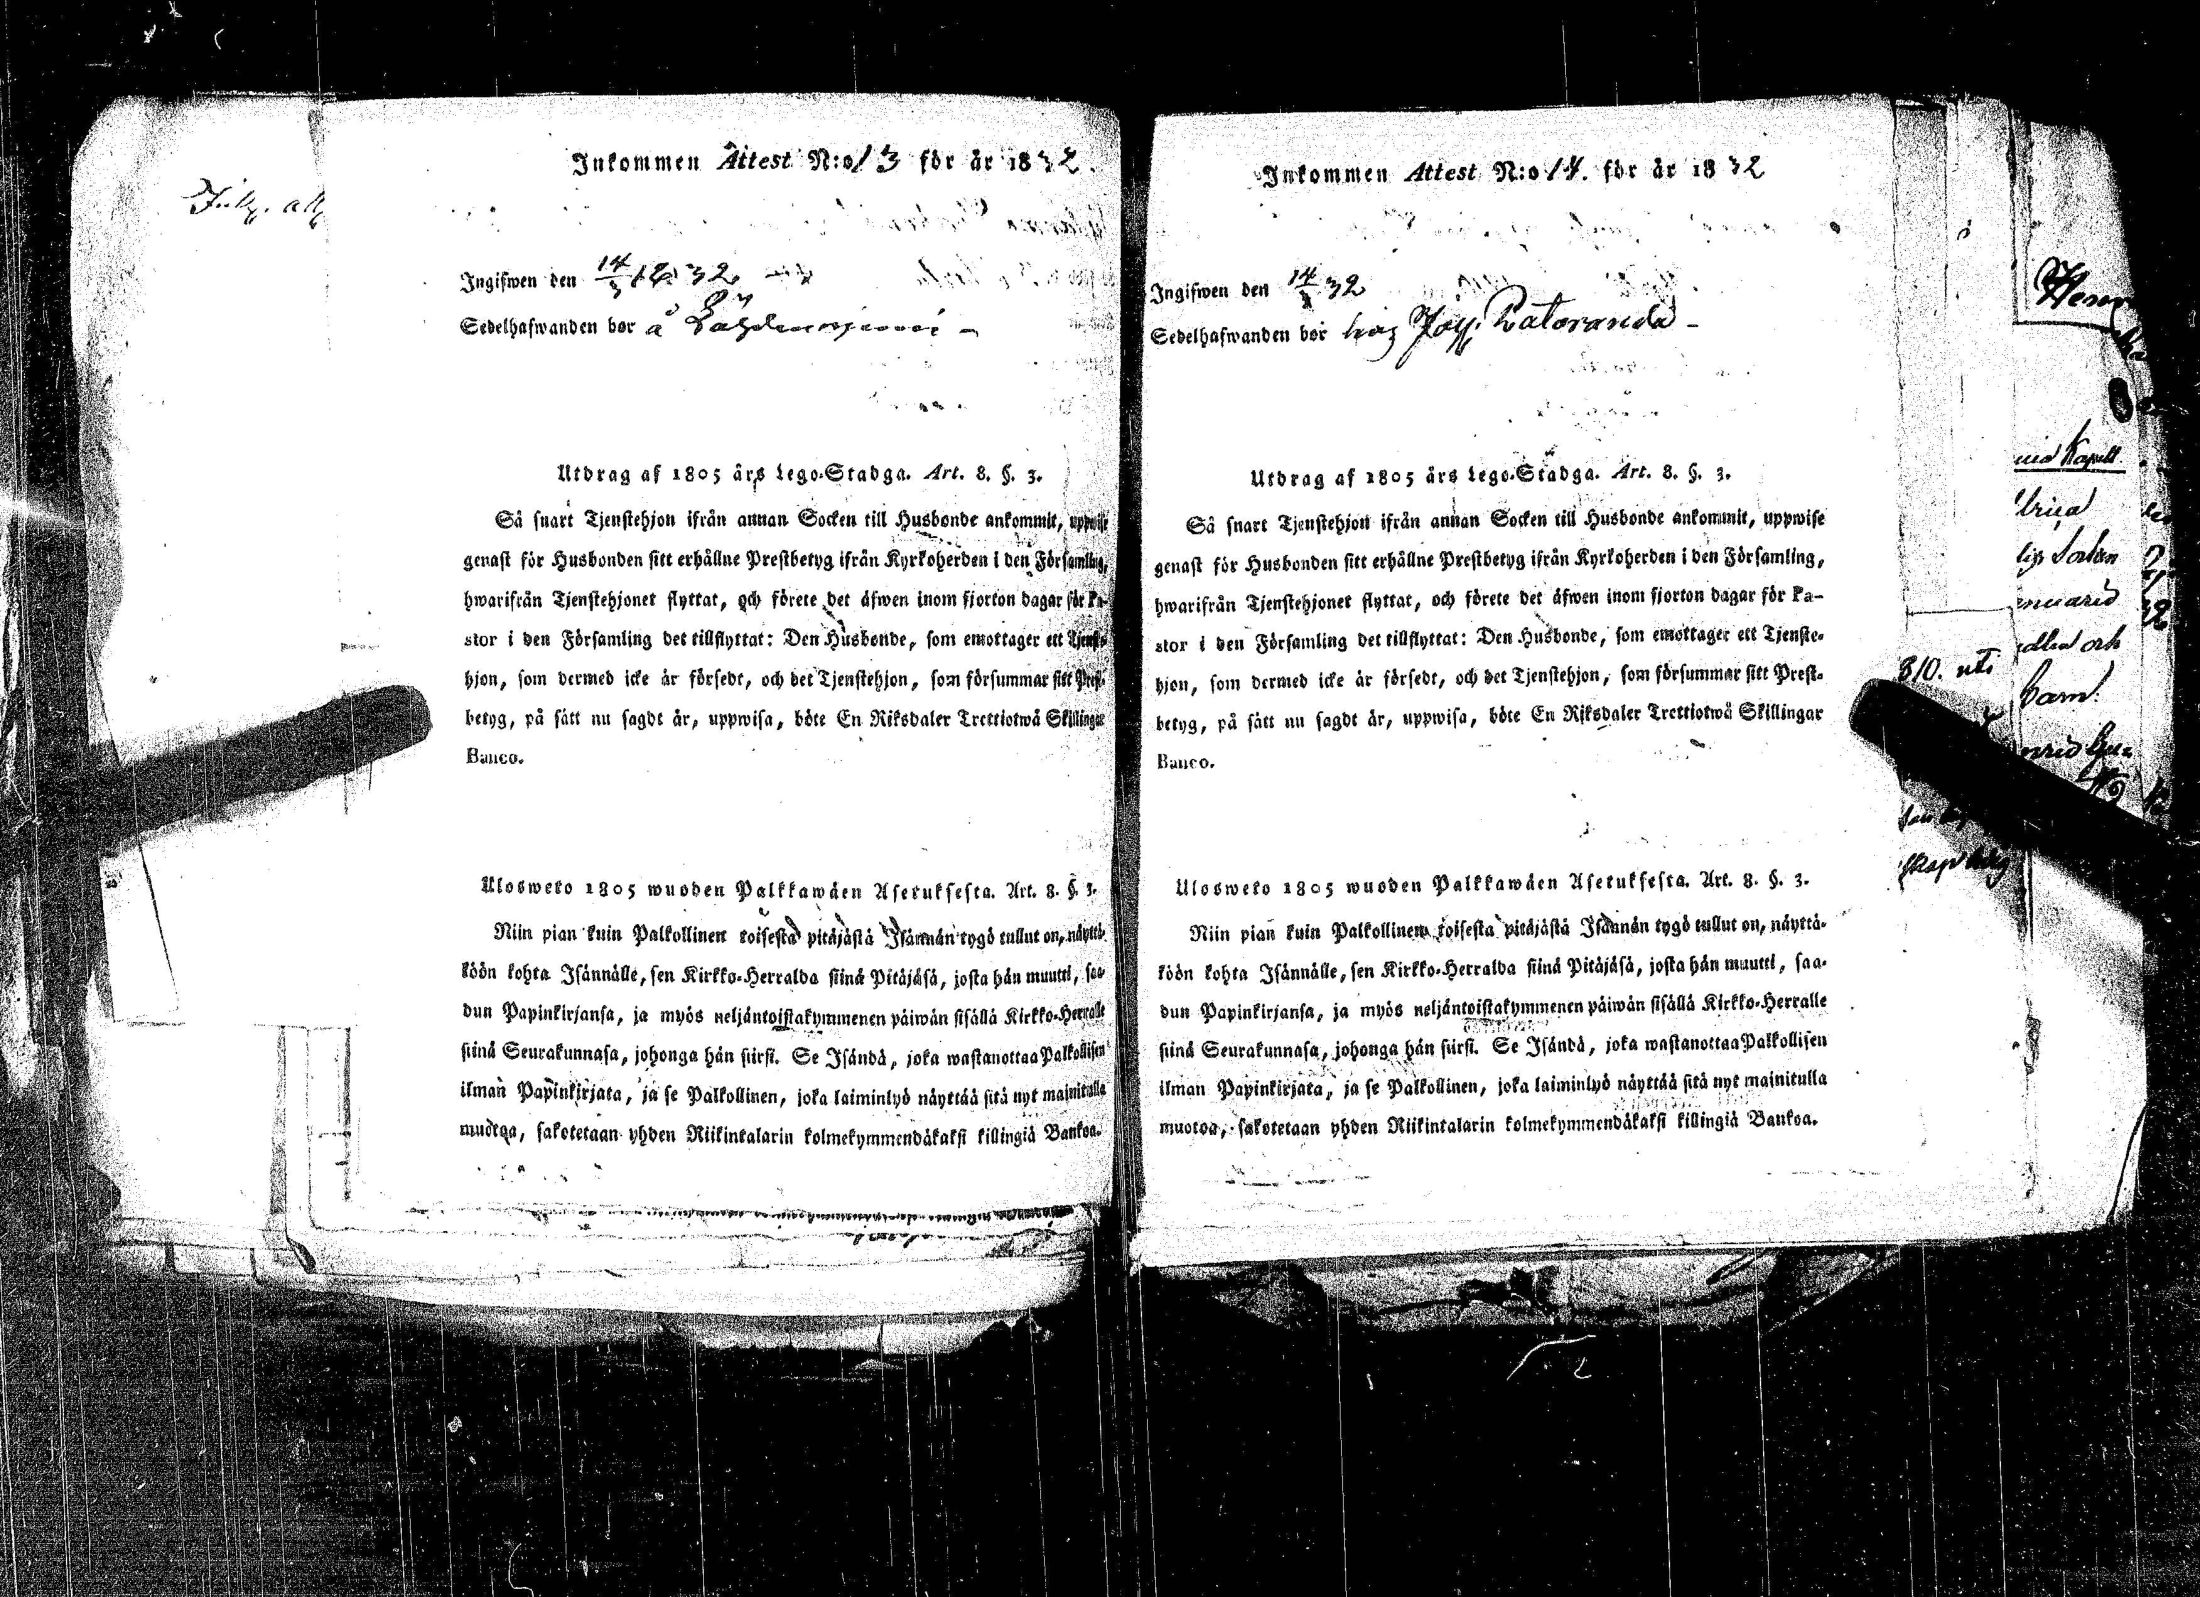 Inkommen Attest N:o 13 för år 1832.
Ingifwen den 14/3 1832.
Sedelhafwanden bor å
Utdrag af 1805 års Lego-Stadga. Art. 8. §. 3.
Så snart Tjenstehjon ifrån annan Socken till Husbonde ankommit, uppwise
genast för Husbonden sitt erhållne Prestbetyg ifrån Kyrkoherden i den Församling,
hwarifrån Tjenstehjonet flyttat, och förete det äfwen inom fjorton dagar för Pa-
stor i den Församling det tillflyttat: Den Husbonde, som emottager ett Tjenste-
hjon, som dermed icke är försedt, och det Tjenstehjon, som försummar sitt Prest-
betyg, på sätt nu sagdt är, uppwisa, böte En Riksdaler Trettiotwå Skillingar
Banco.
Ulosweto 1805 wuoden Palkkawäen Asetuksesta. Art. 8. §. 3.
Niin pian kuin Palkollinen toisesta pitäjästä Isännän tygö tullut on, näyttä-
köön kohta Isännälle, sen Kirkko-Herralda siinä Pitäjäsä, josta hän muutti, saa-
dun Papinkirjansa, ja myös neljäntoistakymmenen päiwän sisällä Kirkko-Herralle
siinä Seurakunnasa, johonga hän siirsi. Se Isändä, joka wastanottaa Palkollisen
ilman Papinkirjata, ja se Palkollinen, joka laiminlyö näyttää sitä nyt mainitulla
muotoa, sakotetaan yhden Riikintalarin kolmekymmendäkaksi killingiä Bankoa.
Inkommen Attest N:o 14. för år 1832
Ingifwen den 14/3 32
Sedelhafwanden bor hos
Utdrag af 1805 års Lego-Stadga. Art. 8. §. 3.
Så snart Tjenstehjon ifrån annan Socken till Husbonde ankommit, uppwise
genast för Husbonden sitt erhållne Prestbetyg ifrån Kyrkoherden i den Församling,
hwarifrån Tjenstehjonet flyttat, och förete det äfwen inom fjorton dagar för Pa-
stor i den Församling det tillflyttat: Den Husbonde, som emottager ett Tjenste-
hjon, som dermed icke är försedt, och det Tjenstehjon, som försummar sitt Prest-
betyg, på sätt nu sagdt är, uppwisa, böte En Riksdaler Trettiotwå Skillingar
Banco.
Ulosweto 1805 wuoden Palkkawäen Asetuksesta. Art. 8. §. 3.
Niin pian kuin Palkollinen toisesta pitäjästä Isännän tygö tullut on, näyttä-
köön kohta Isännälle, sen Kirkko-Herralda siinä Pitäjäsä, josta hän muutti, saa-
dun Papinkirjansa, ja myös neljäntoistakymmenen päiwän sisällä Kirkko-Herralle
siinä Seurakunnasa, johonga hän siirsi. Se Isändä, joka wastanottaa Palkollisen
ilman Papinkirjata, ja se Palkollinen, joka laiminlyö näyttää sitä nyt mainitulla
muotoa, sakotetaan yhden Riikintalarin kolmekymmendäkaksi killingiä Bankoa.